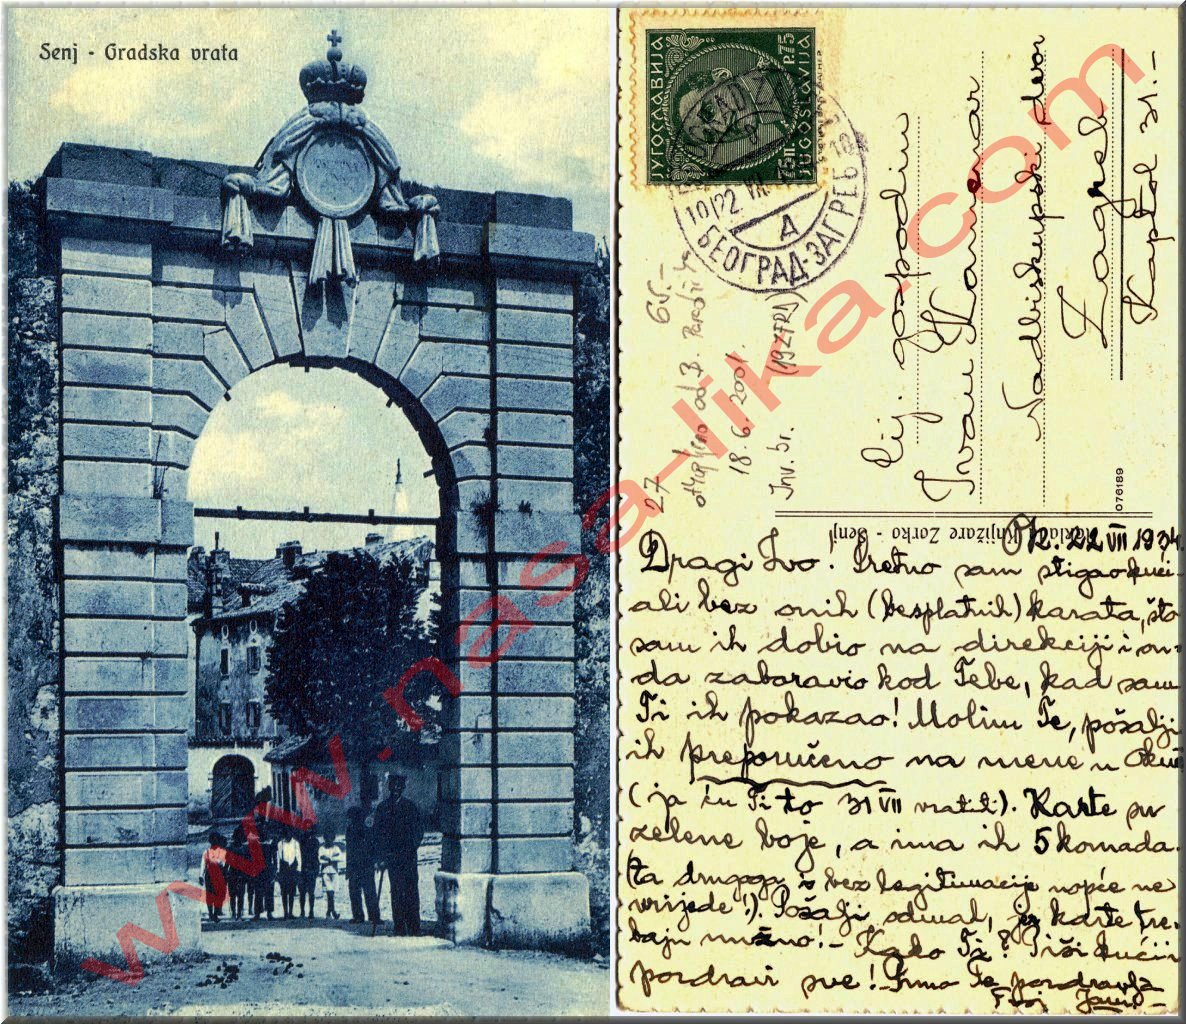 Senj - Gradska vrata
ЈУГОСЛАВИЈА
75 П. P. 75
JUGOSLAVIJA
10/22 VII
A
БЕОГРАД-ЗАГРЕБ
Cij. gospodin
Ivan
Nadbiskupski dvor
Zagreb
Kaptol 31.-
076189
65.-
27
od B.
18.6.2001.
Inv. br.
Knjižare Zorko - Senj
22 VII 1934.
Dragi Ivo! Sretno sam stigao kući-
ali bez onih (besplatnih) karata, što
sam ih dobio na direkciji i on-
da zaboravio kod Tebe, kad sam
Ti ih pokazao! Molim Te, pošalji
ih preporučeno na mene u
(ja ću Ti to 31 VII vratiti). Karte su
zelene boje, a ima ih 5 komada.
(za drugoga i bez legitimacije uopće ne
vrijede!). Pošalji odmah, jer karte tre-
baju nužno! - Kako Ti? Piši kući i
pozdravi sve! - Te pozdravlja
Tvoj
www.nasa-lika.com